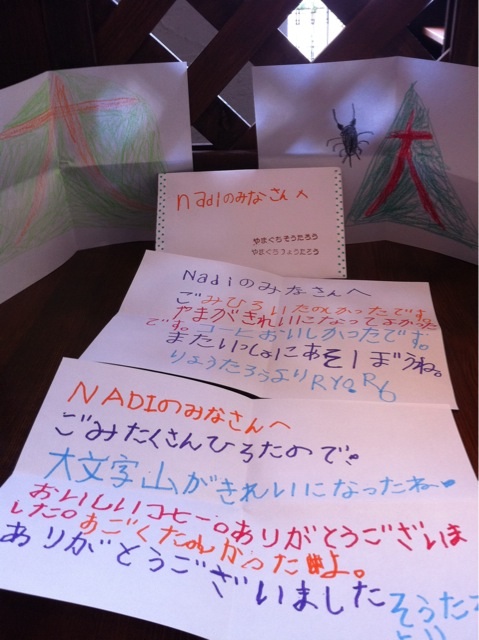 大
大
nadiのみなさんへ
やまぐちそうたろう
やまぐちりょうたろう
Nadiのみなさんへ
ごみひろいたのしかったです。
やまがきれいになってよかった
です。コーヒおいしかったです。
またいっしょにあそぼうね。
りょうたろうよりRYORO
NADIのみなさんへ
ごみたくさんひろたので、
大文字山がきれいになったね。
おいしいコヒー。ありがとうございま
した。すごくたのしかったよ。
ありがとうございましたそうたろ